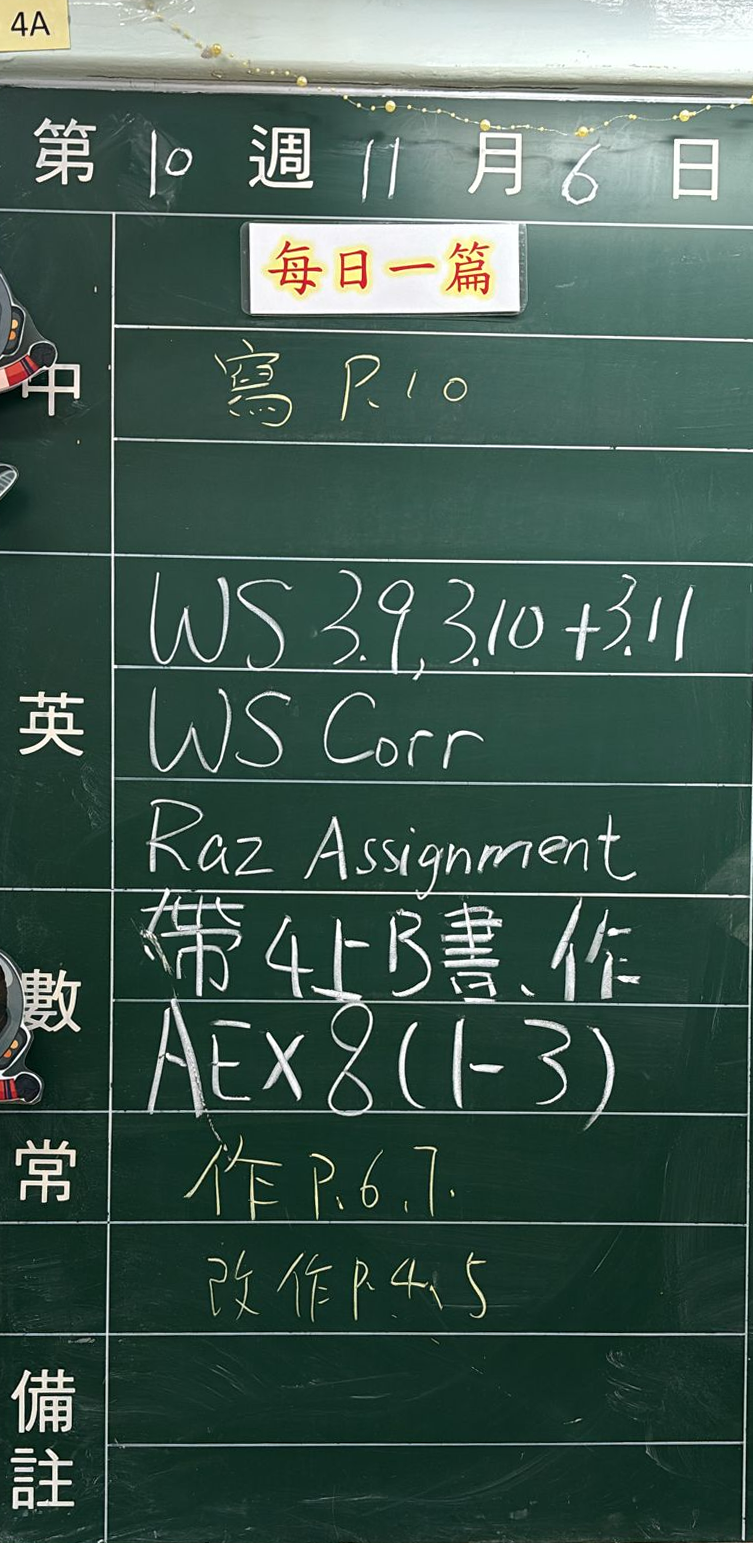 4A
第 10 週 11 月 6 日
每日一篇
中
寫 P.10
英
WS 3.9, 3.10 + 3.11
WS Corr
Raz Assignment
數
帶 4上B書、作
AEX 8 (1-3)
常
作 P.6、7.
改作 P.4、5
備註